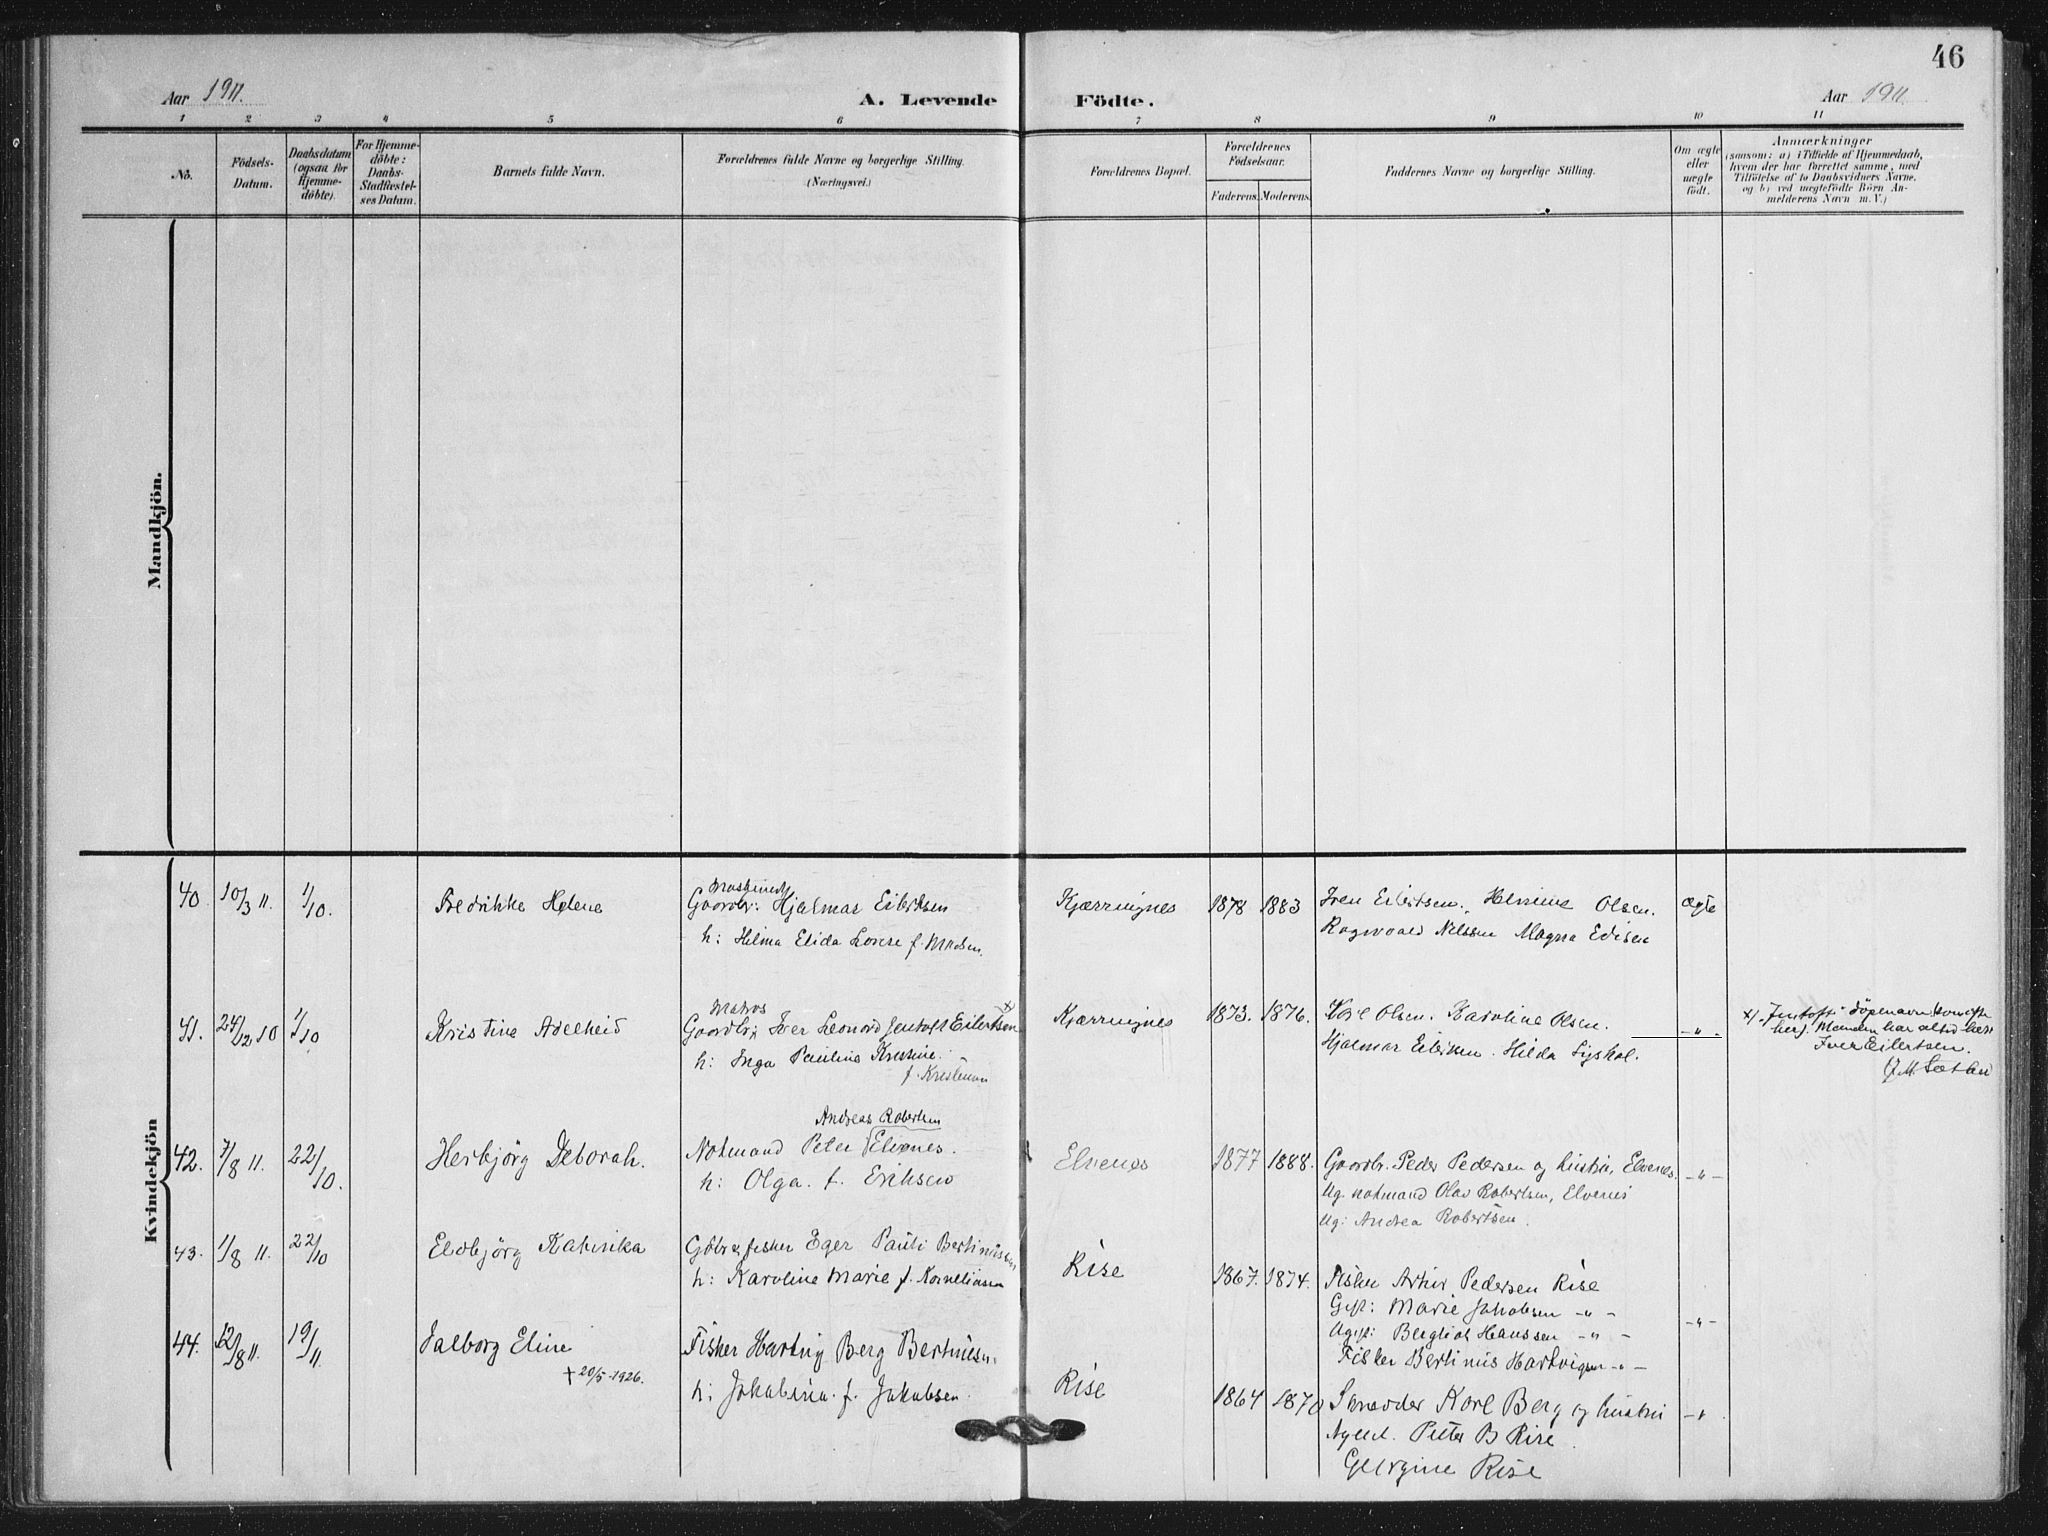 46
Aar 1911.
A. Levende Födte.
Aar 1911.
1 2 3 4 5 6 7 8 9 10 11
No.
Födsels-
Datum.
Daabsdatum
(ogsaa for
Hjemme-
döbte).
For Hjemme-
döbte:
Daabs-
Stadfæstel-
ses Datum.
Barnets fulde Navn.
Forældrenes fulde Navne og borgerlige Stilling.
(Næringsvei.)
Forældrenes Bopæl.
Forældrenes
Födselsaar.
Faderens. Moderens.
Faddernes Navne og borgerlige Stilling.
Om ægte
eller
uægte
født.
Anmærkninger
(saasom: a) i Tilfælde af Hjemmedaab,
hvem der har forrettet samme, med
Tilföielse af to Daabsvidners Navne,
og b) ved uægtefödte Börn An-
melderens Navn m. V.)
Mandkjön.
Kvindekjön
40. 10/3 11. 1/10. Fredrikke Helene
Gaardbr: Hjalmar Eilertsen
h: Helma Elida Lovise f. Madsen.
Kjærringnes 1878 1883
Iver Eilertsen. Olsen.
Ragnvald Nilssen Magna
ægte
41. 24/12 10 1/10 Kristine Adelheid
Matros
Gaardbr; Iver Leonard Jentoft Eilertsen x
h: Inga Pauline Kristine
f. Kristensen
Kjærringnes 1873. 1876.
Karl Olsen. Karoline Olsen.
Hjalmar Hilda
-"-
x) Jentoft
Iver Eilertsen.
42. 7/8 11. 22/10. Herbjörg Deborah.
Andreas Robertsen
Notmand Peter Elvenes.
h: Olga f. Eriksen
Elvenes 1877 1888.
Gaardbr. Peder Pedersen og hustru, Elvenes.
Ug. notmand Olav Robertsen, Elvenes
Ug: Andrea Robertsen.
-"-
43. 1/8 11. 22/10 Eldbjörg Katinka
Gbr & fisker Eger Pauli Bertinussen
h: Karoline Marie f. Korneliussen
Rise 1867. 1874.
Fisker Artur Pedersen Rise
Gift: Marie Jakobsen -"-
Ugift: Bergliot Hanssen -"-
Fisker Bertinus Hartvigsen -"-
-"-
44. 12/8 11. 19/11. Valborg Eline
+ 20/5-1926.
Fisker Hartvig Berg Bertinussen.
h: Jakobina f. Jakobsen.
Rise 1864 1870
Skrædder Karl Berg og hustru
Peter B Rise.
Georgine Rise
-"-